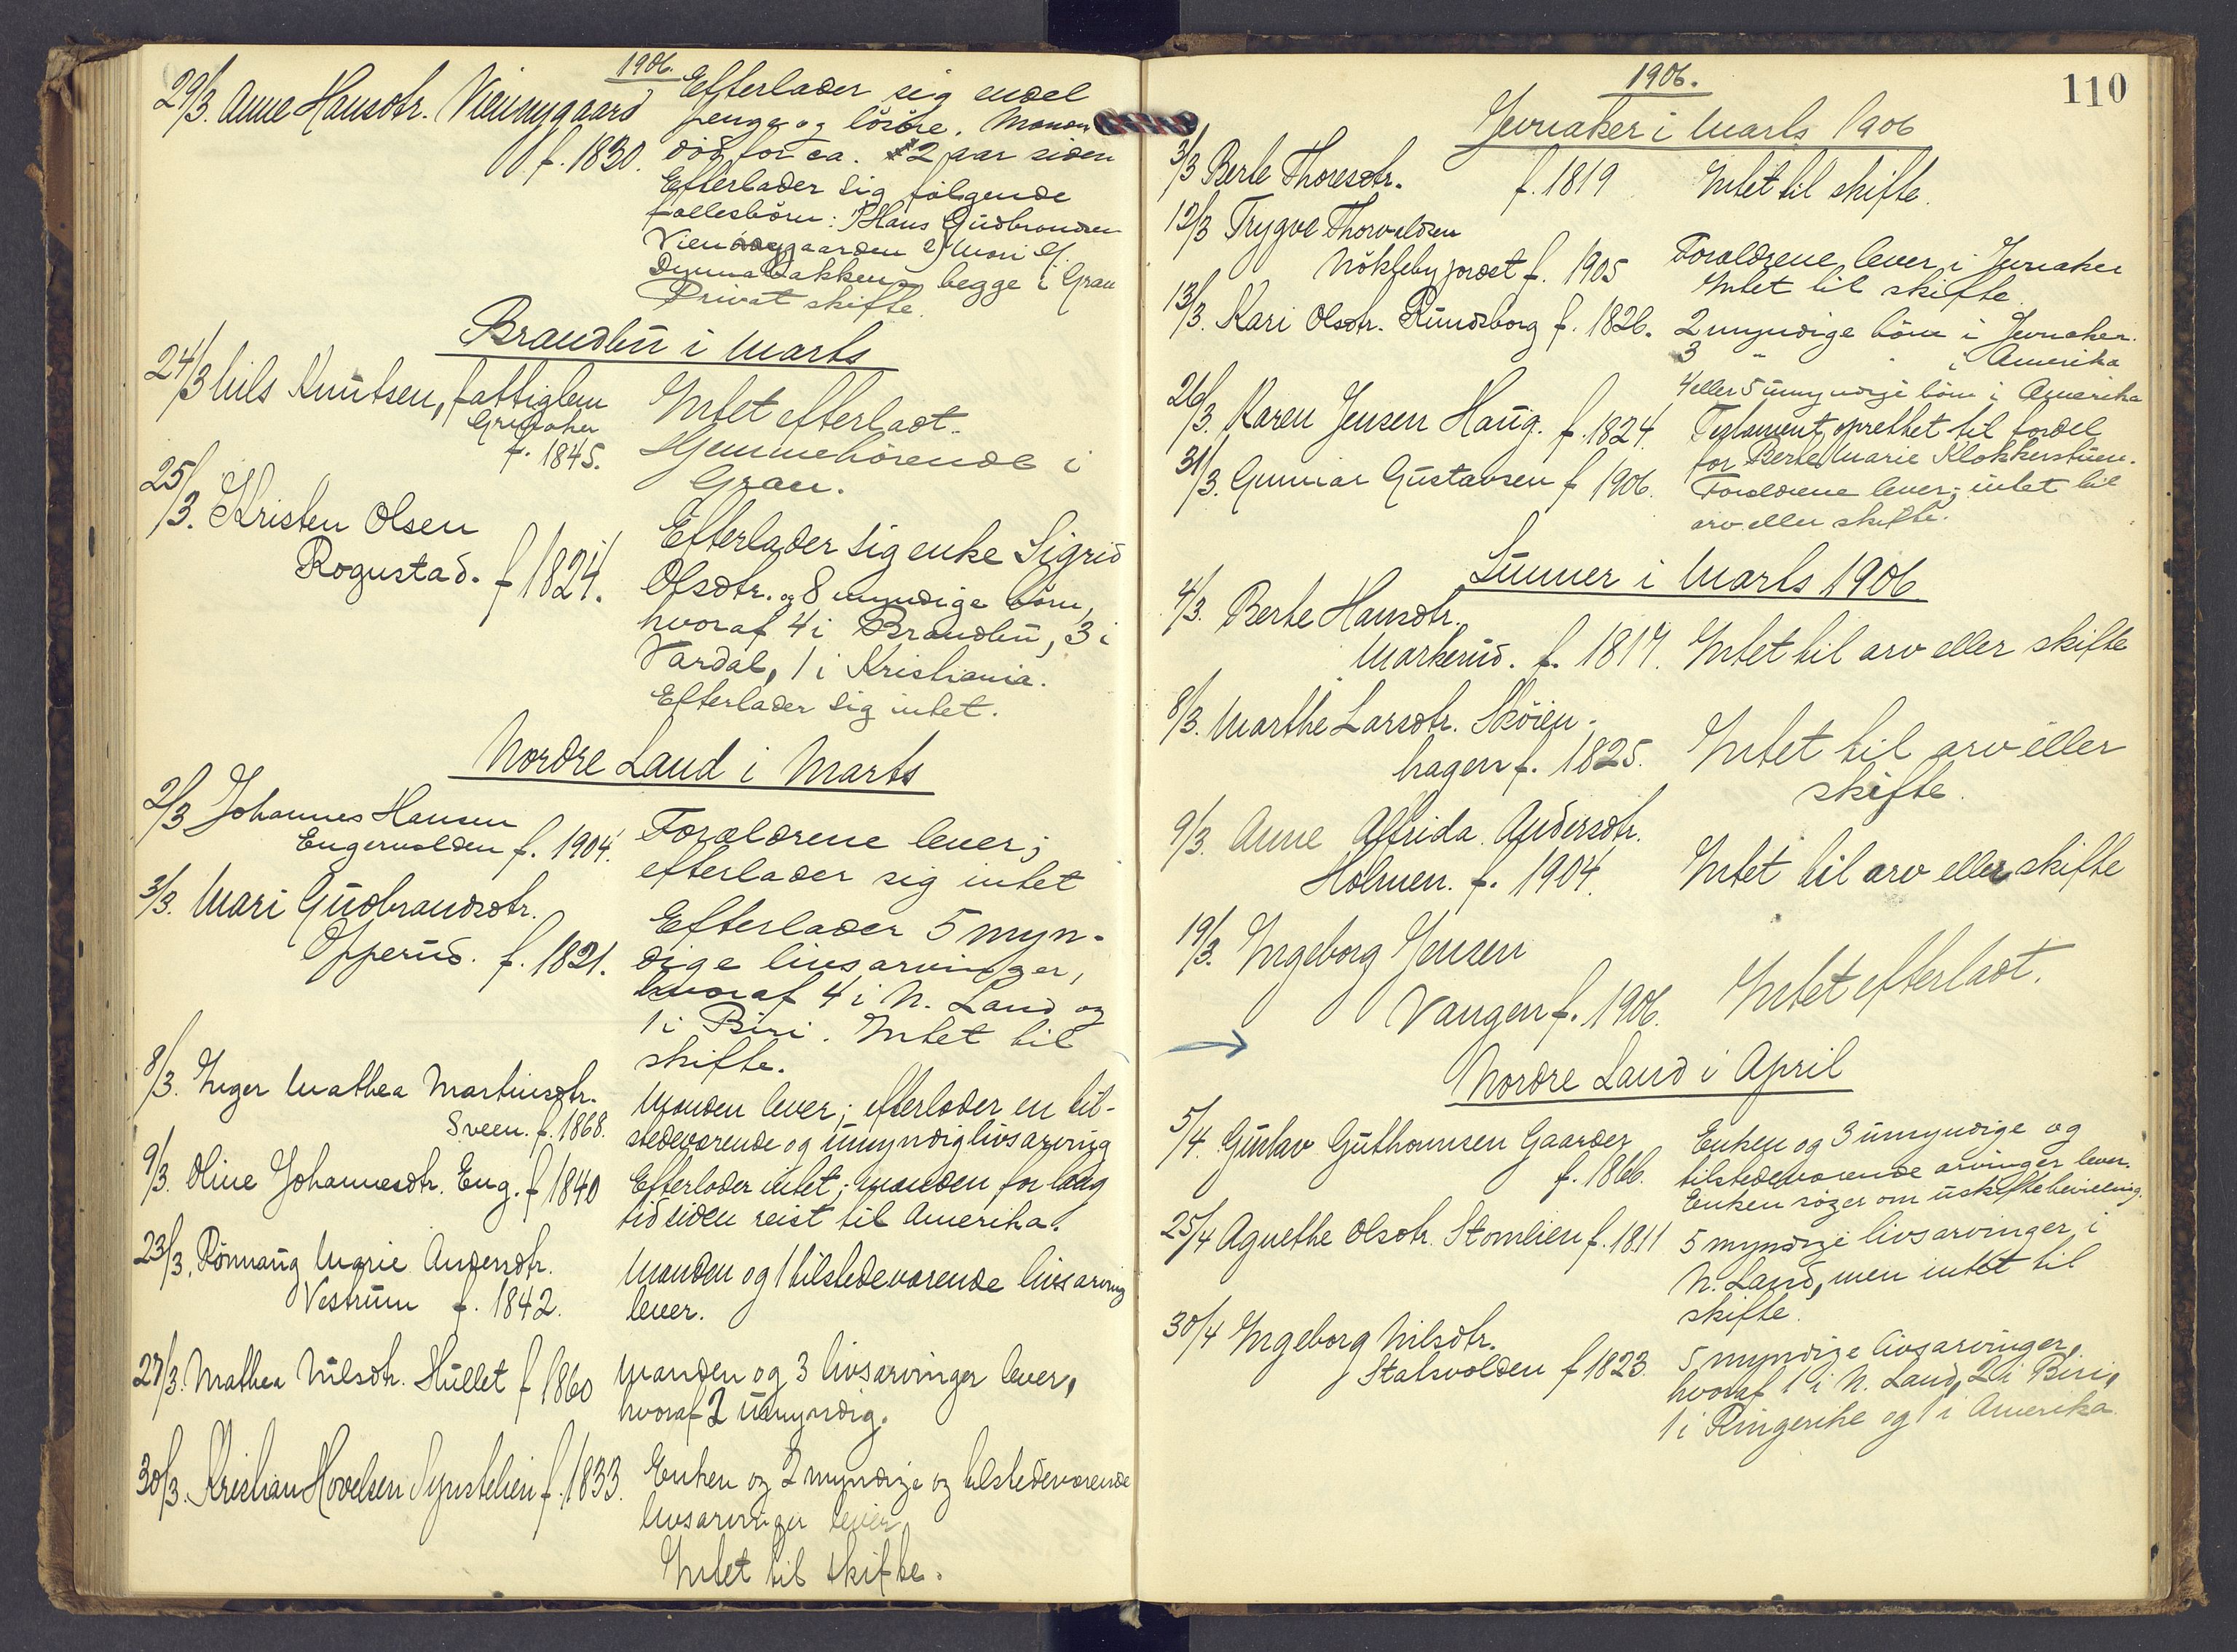 1906.
29/3. Anne Hansdtr. Viennygaard
f. 1830.
Efterlader sig endel
penge og løsøre. Manden
død for ca. 2 aar siden
Efterlader sig følgende
fællesbørn: 1) Hans Gudbrandsen
Viennygaarden 2) Mari G.
Dynnabakken, begge i Gran
Privat skifte.
Brandbu i Marts
24/3 Nils Knutsen, fattiglem
f. 1845.
Intet efterladt.
Hjemmehørende i
Gran.
25/3. Kristen Olsen
Rognstad. f 1824.
Efterlader sig enke Sigrid
Olsdtr. og 8 myndige børn,
hvoraf 4 i Brandbu, 3 i
Vardal, 1 i Kristiania.
Efterlader sig intet.
Nordre Land i Marts
2/3 Johannes Hansen
Engernvolden f. 1904.
Forældrene lever;
efterlader sig intet
3/3. Mari Gudbrandsdtr.
Opperud. f. 1821.
Efterlader 5 myn-
dige livsarvinger,
hvoraf 4 i N. Land og
1 i Biri. Intet til
skifte.
8/3. Inger Mathea Martinsdtr.
Sveen. f. 1868.
Manden lever; efterlader en til-
stedeværende og umyndig livsarving
9/3. Oline Johannesdtr. Eng. f 1840
Efterlader intet; manden for lang
tid siden reist til Amerika.
23/3. Rønnaug Marie Andersdtr.
Vestrum f. 1842.
Manden og 1 tilstedeværende livsarving
lever.
27/3. Mathea Nilsdtr. Hullet f 1860
Manden og 3 livsarvinger lever,
hvoraf 2 umyndig.
30/3. Kristian Hovelsen Synstelien f. 1833.
Enken og 2 myndige og tilstedeværende
livsarvinger lever
Intet til skifte.
110
1906.
Jevnaker i Marts 1906
3/3 Berte Thoresdtr. f. 1819
Intet til skifte.
12/3 Trygve Thorvaldsen
Nøklebyjordet f. 1905
Forældrene lever i Jevnaker
Intet til skifte.
13/3. Kari Olsdtr. Rundsborg f. 1826.
2 myndige børn i Jevnaker.
3 " " i Amerika
4 eller 5 umyndige børn i Amerika
26/3. Karen Jensen Haug. f. 1824.
Testament oprettet til fordel
for Berte Marie Klokkerstuen.
31/3. Gunnar Gustavsen f 1906.
Forældrene lever; intet til
arv eller skifte.
Lunner i Marts 1906
4/3. Berte Hansdtr.
Markerud. f. 1817.
Intet til arv eller skifte
8/3. Marthe Larsdtr. Skøien-
hagen f. 1825.
Intet til arv eller
skifte.
9/3. Anne Alfrida Andersdtr.
Holmen. f. 1904.
Intet til arv eller skifte
19/3. Ingeborg Jensen
Vangen f. 1906.
Intet efterladt.
Nordre Land i April
5/4. Gustav Guthormsen Gaarder
f. 1866.
Enken og 3 umyndige og
tilstedeværende arvinger lever.
Enken søger om uskiftebevilling.
25/4 Agnethe Olsdtr. Stomlien f. 1811
5 myndige livsarvinger i
N. Land, men intet til
skifte.
30/4 Ingeborg Nilsdtr.
Stalsvolden f 1823.
5 myndige livsarvinger,
hvoraf 1 i N. Land, 2 i Biri,
1 i Ringerike og 1 i Amerika